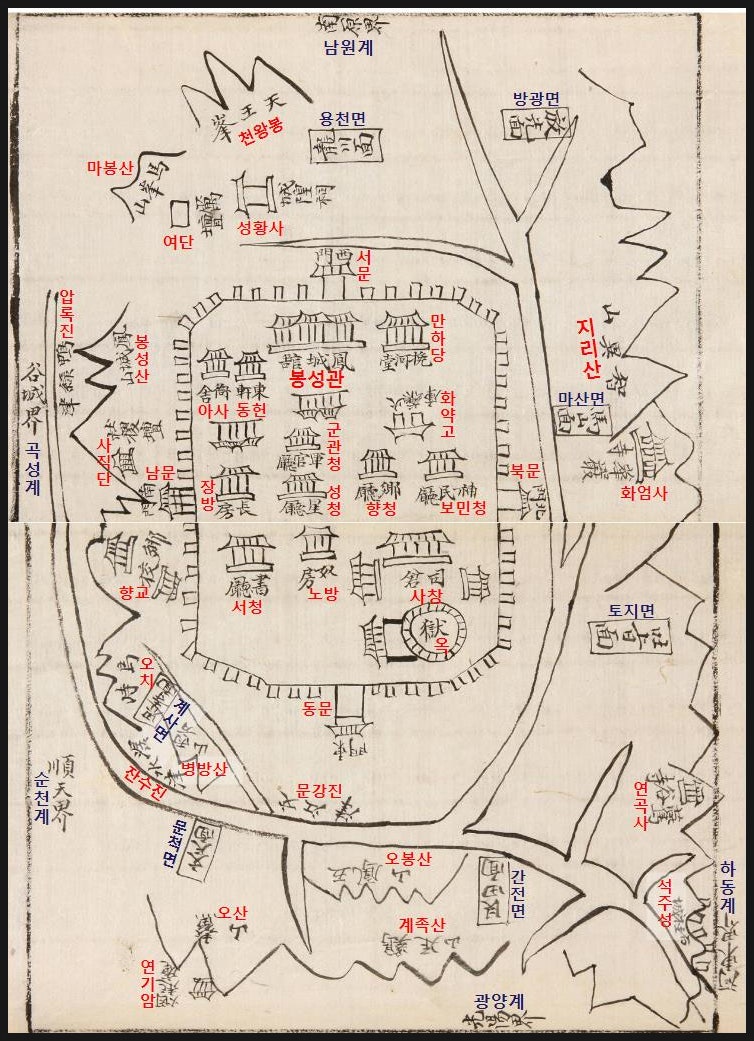 南原界
남원계
天王峯
천왕봉
용천면
龍川面
방광면
放光面
마봉산
馬峯山
여단
厲壇
성황사
城隍祠
西門
서문
압록진
鴨綠津
봉성산
鳳城山
谷城界
곡성계
鳳城館
봉성관
만하당
挽河堂
衙舍
아사
東軒
동헌
화약고
火藥庫
군관청
軍官廳
智異山
지리산
마산면
馬山面
華嚴寺
화엄사
社稷壇
사직단
남문
南門
장방
長房
성청
星廳
鄕廳
향청
補民廳
보민청
북문
北門
鄕校
향교
書廳
서청
奴房
노방
司倉
사창
獄
옥
토지면
吐旨面
오치
烏峙
계사면
동문
東門
병방산
잔수진
潺水津
문강진
文江津
順天界
순천계
문척면
文尺面
연곡사
鷰谷寺
오봉산
五鳳山
간전면
艮田面
석주성
하동계
河東界
오산
鰲山
계족산
鷄足山
연기암
緣起庵
광양계
光陽界